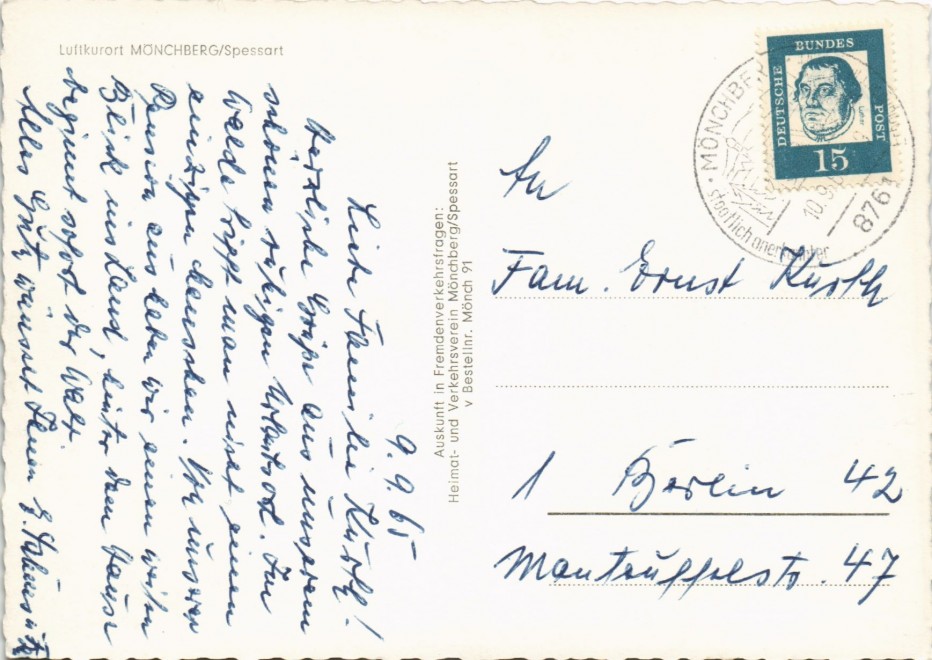 Luftkurort MÖNCHBERG/Spessart
9.9.65
Liebe Familie Kurth!
Herzliche Grüße aus unserem
schönen ruhigen Urlaubsort. Im
Walde trifft man nicht einen
einzigen Menschen. Von unserer
Pension aus haben wir einen weiten
Blick ins Land, hinter dem Hause
beginnt sofort der Wald.
Alles Gute wünscht Ihnen
Auskunft in Fremdenverkehrsfragen:
Heimat- und Verkehrsverein Mönchberg/Spessart
v Bestellnr. Mönch 91
DEUTSCHE BUNDES POST
Luther
15
MÖNCHBER
staatlich anerkannter
8761
10.9.
An
Fam. Ernst Kurth
1 Berlin 42
Manteuffelstr. 47